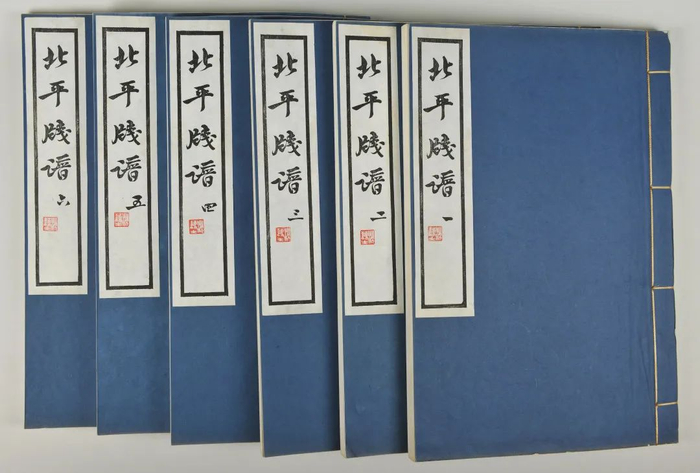 北平牋谱 一
北平牋谱 二
北平牋谱 三
北平牋谱 四
北平牋谱 五
北平牋谱 六